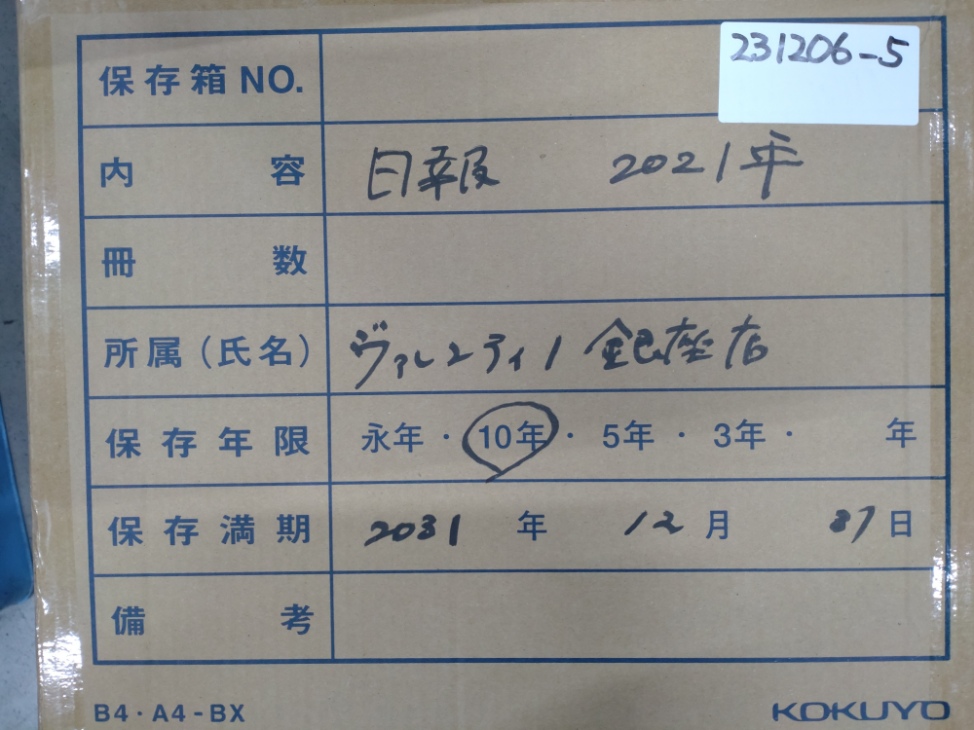 保存箱NO. 231206-5
内容 日報 2021年
冊数
所属(氏名) ヴァレンティノ 銀座店
保存年限 永年・10年・5年・3年・ 年
保存満期 2031年 12月 31日
備考
B4・A4-BX KOKUYO